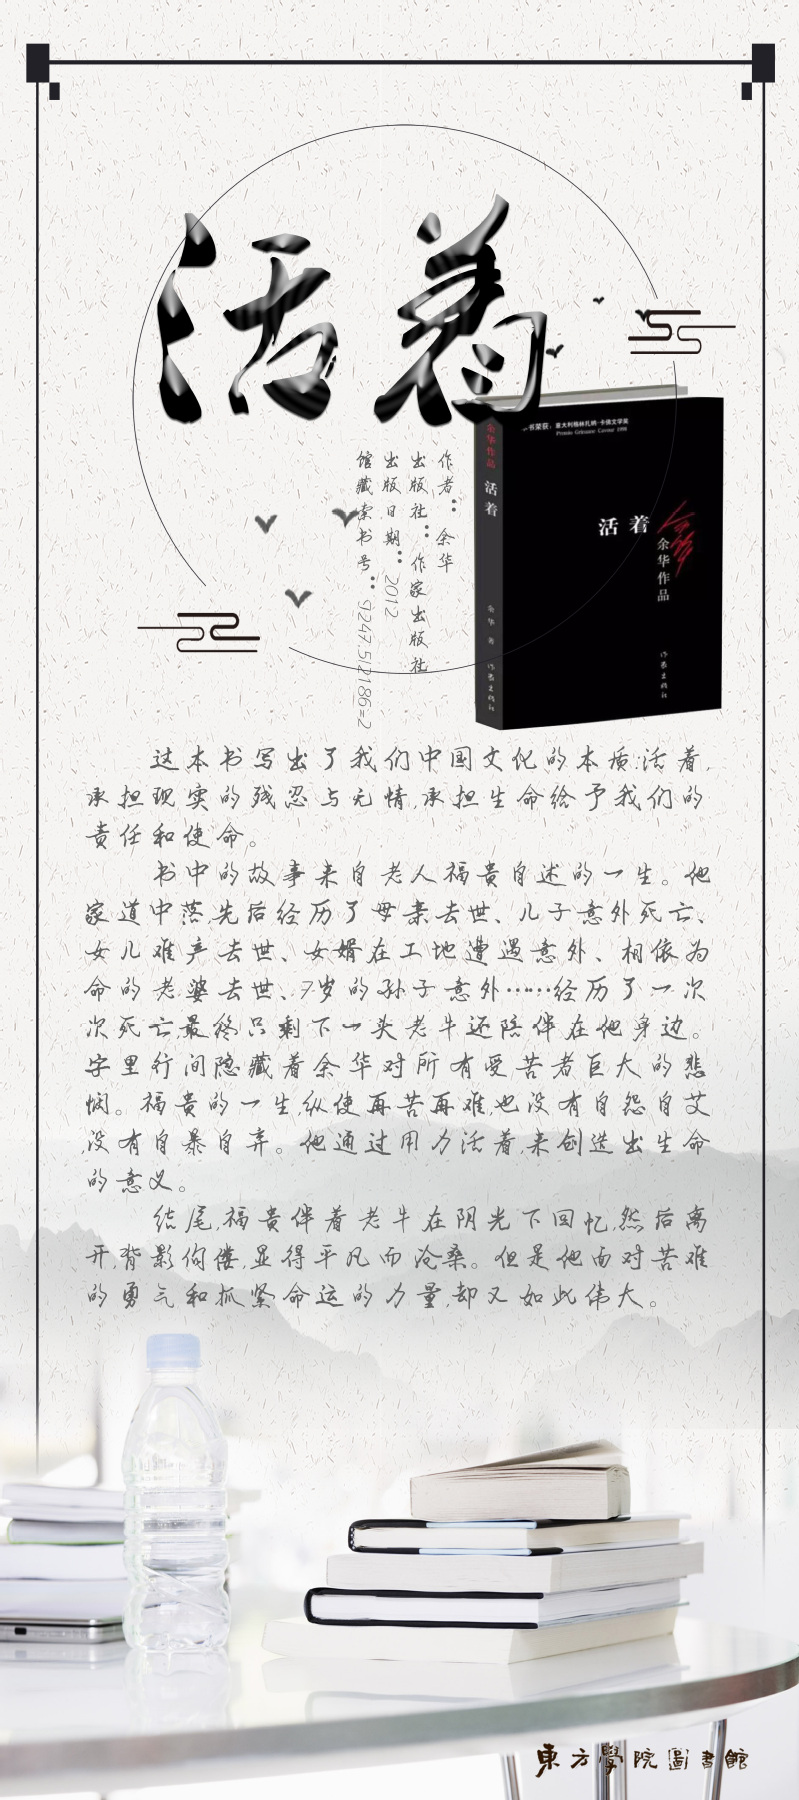 活着
本书荣获：意大利格林扎纳·卡佛文学奖
Premio Grinzane Cavour 1998
余华作品
活着
余华 著
作家出版社
活着
余华作品
作家出版社
作者：余华
出版社：作家出版社
出版日期：2012
馆藏索书号：I247.5/2186=2
这本书写出了我们中国文化的本质:活着,
承担现实的残忍与无情,承担生命给予我们的
责任和使命。
书中的故事来自老人福贵自述的一生。他
家道中落,先后经历了母亲去世、儿子意外死亡、
女儿难产去世、女婿在工地遭遇意外、相依为
命的老婆去世、7岁的孙子意外……经历了一次
次死亡,最终只剩下一头老牛还陪伴在他身边。
字里行间隐藏着余华对所有受苦者巨大的悲
悯。福贵的一生纵使再苦再难,也没有自怨自艾
,没有自暴自弃。他通过用力活着,来创造出生命
的意义。
结尾,福贵伴着老牛在阴光下回忆,然后离
开,背影佝偻,显得平凡而沧桑。但是他面对苦难
的勇气和抓紧命运的力量,却又如此伟大。
東方學院圖書館